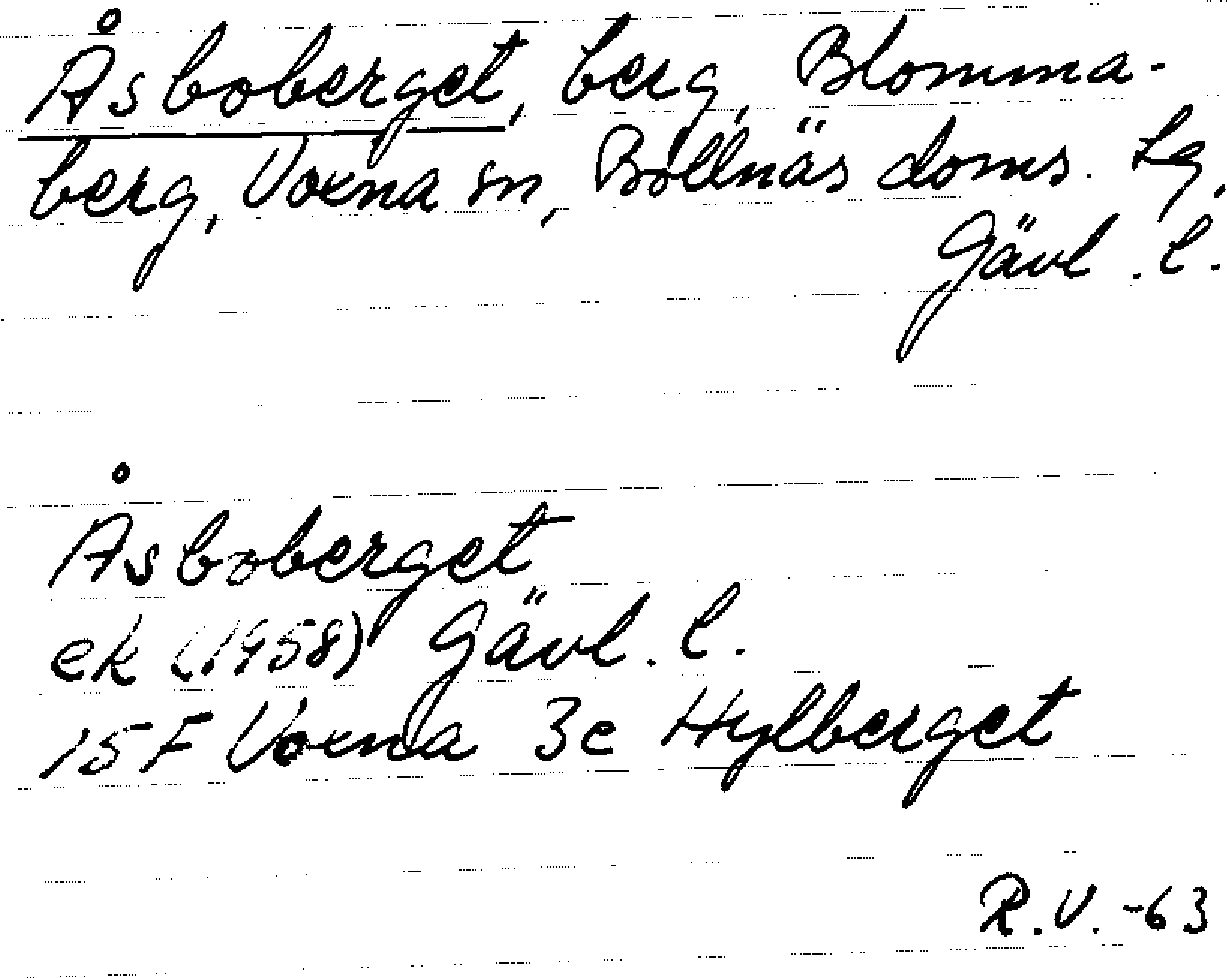 Åsboberget, berg, Blomma-
berg, Voxna sn, Bollnäs doms. lg,
Gävl. l.
Åsboberget
ek (1958) Gävl. l.
15F Voxna 3c Hylberget
R.V. -63